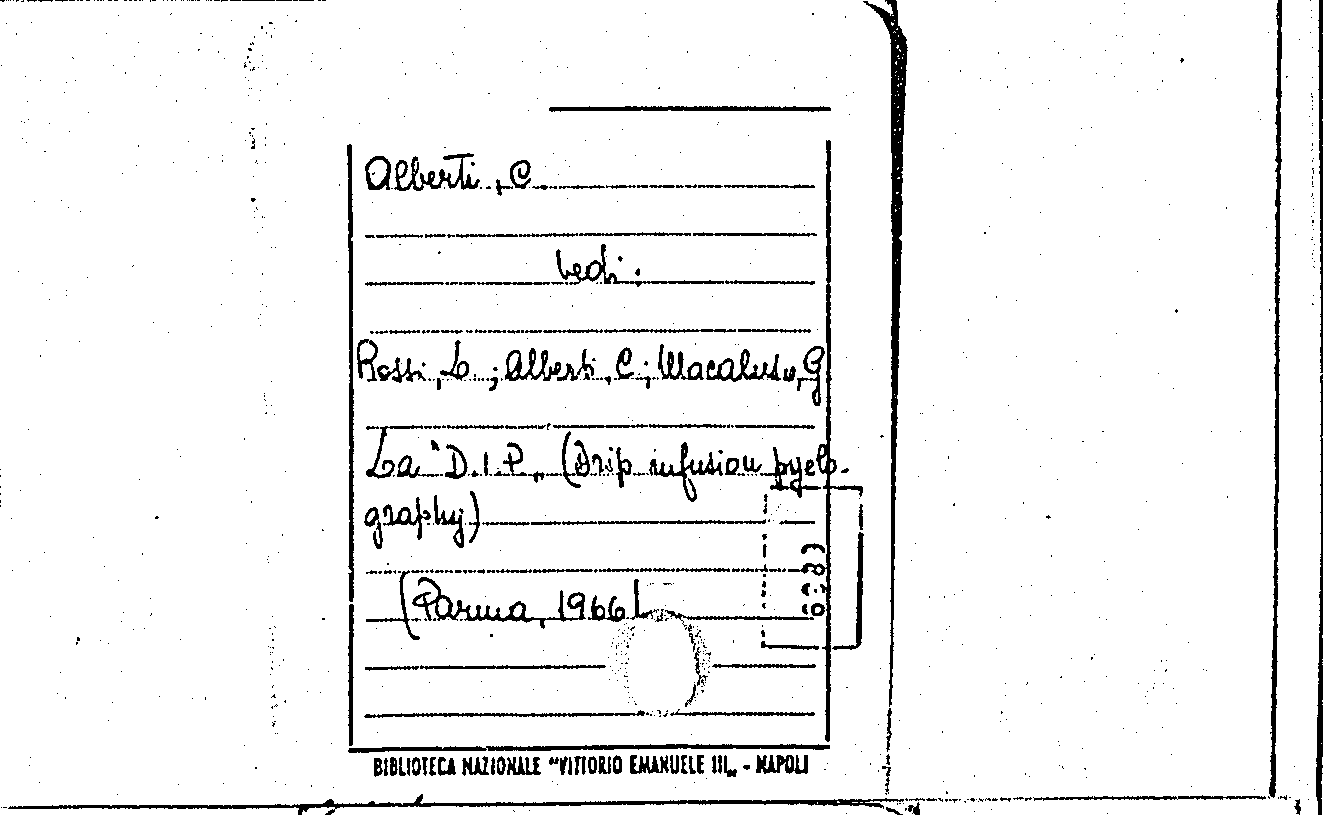 Alberti, C.
vedi:
Rossi, L.; Alberti, C; Macaluso, G
La "D.I.P." (Drip infusion pyelo-
graphy)
(Parma, 1966)
BIBLIOTECA NAZIONALE "VITTORIO EMANUELE III" - NAPOLI